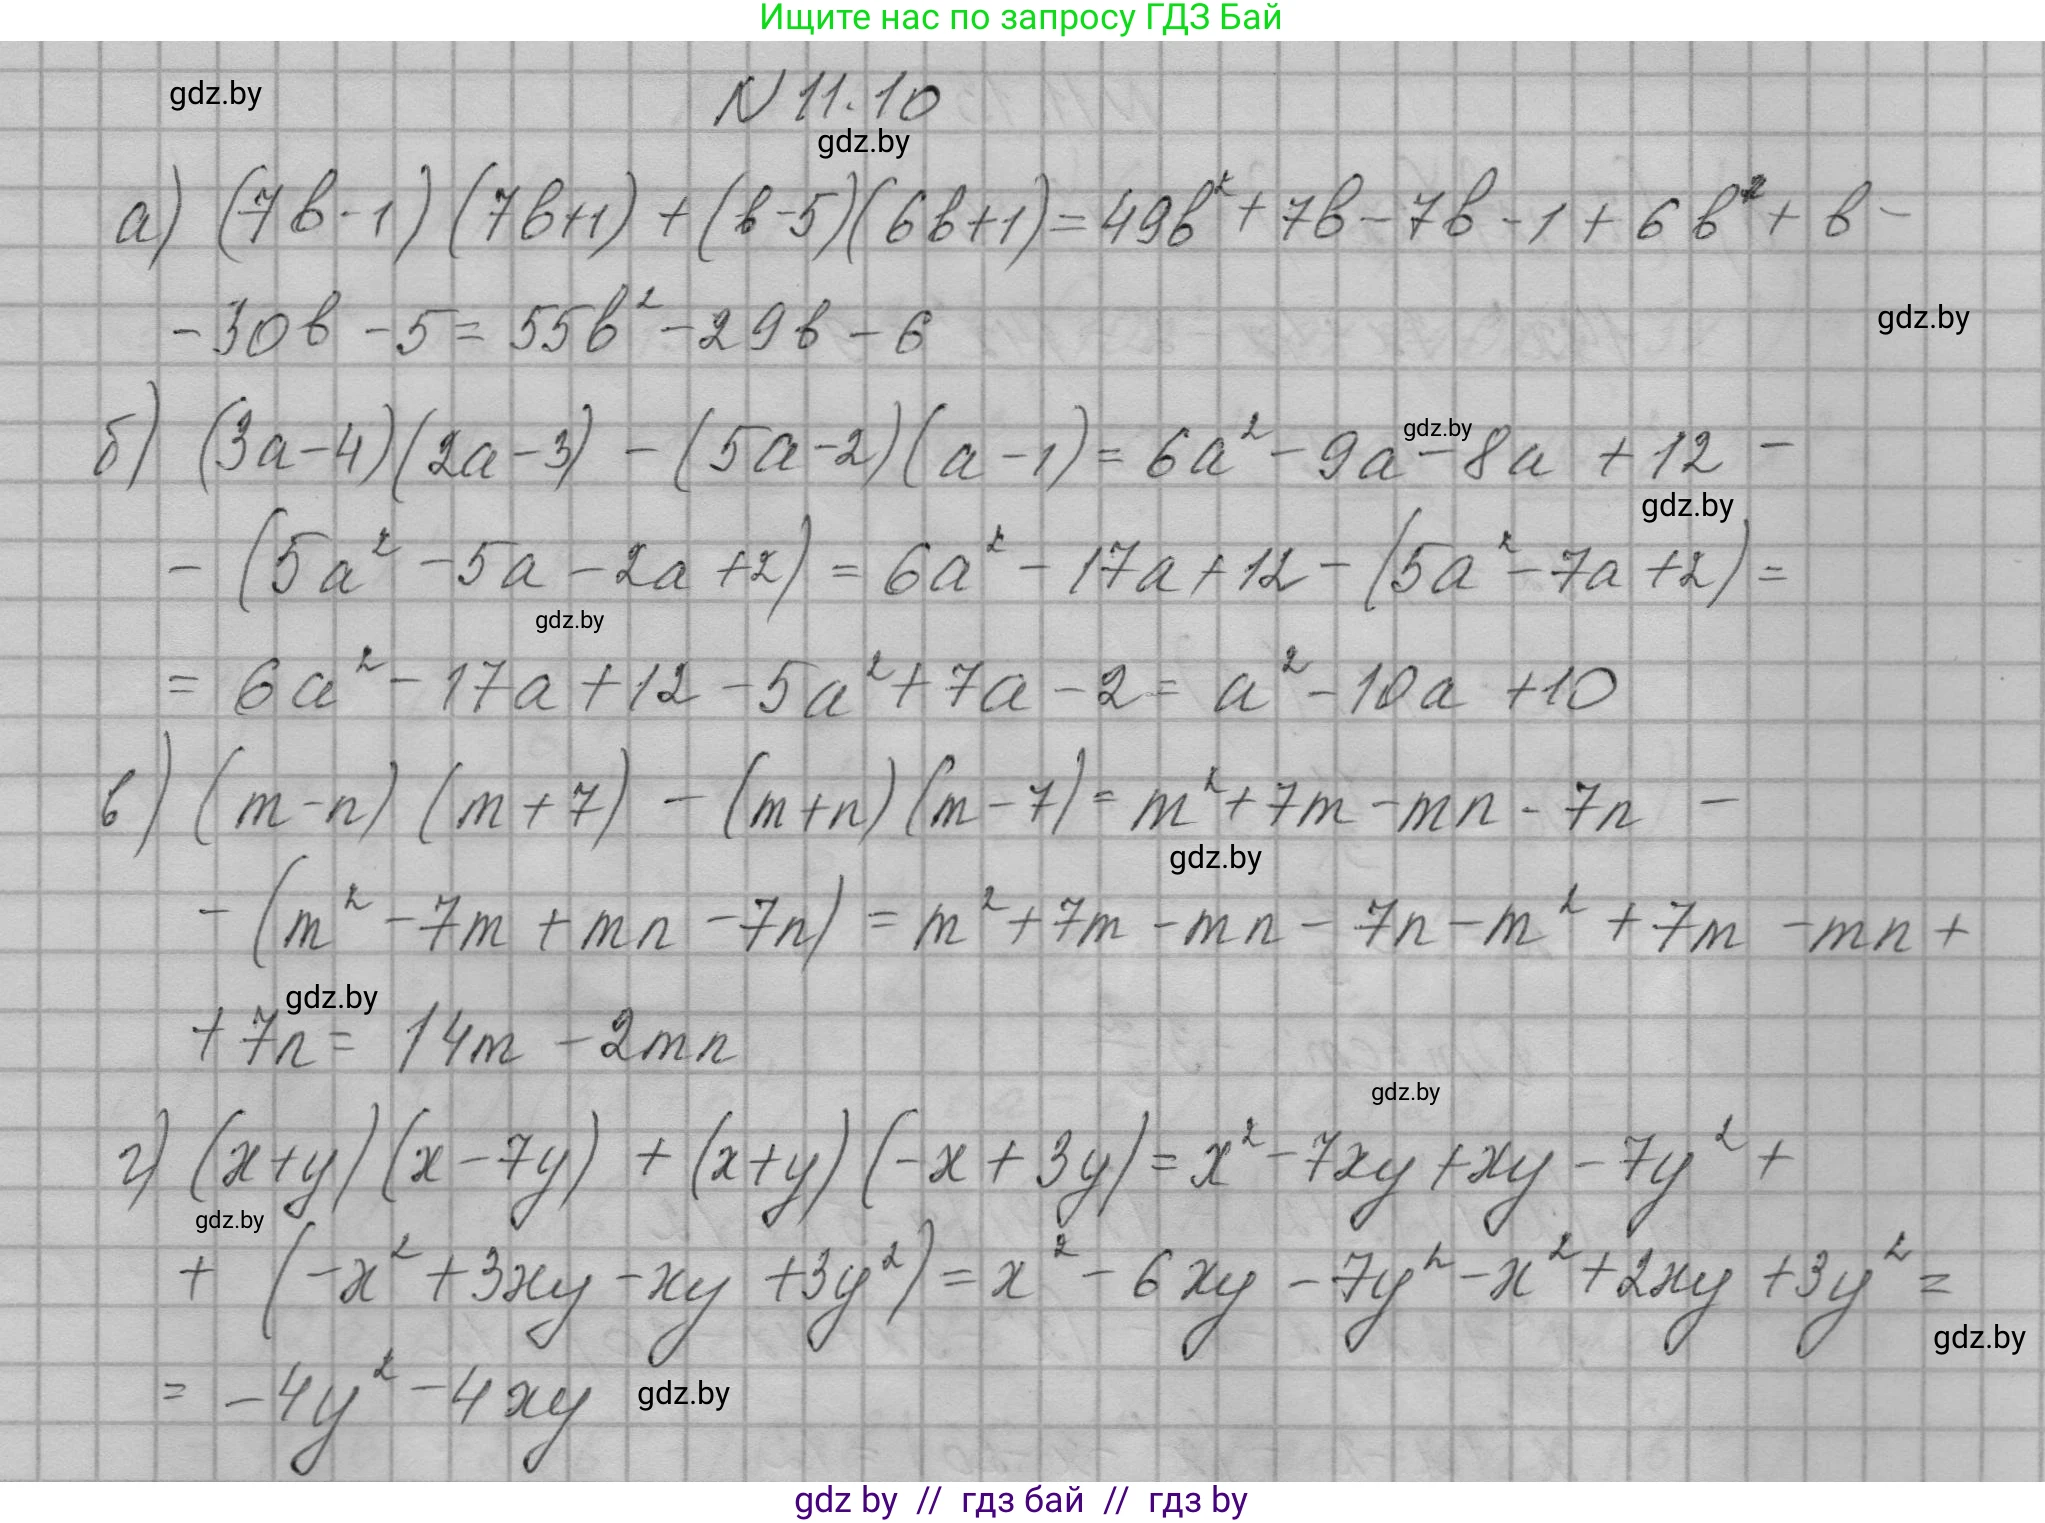 Ищите нас по запросу ГДЗ Бай
gdz.by
N 11.10
gdz.by
а) (7b-1) (7b+1) + (b-5)(6b+1) = 49b² + 7b - 7b - 1 + 6b² + b -
- 30b - 5 = 55b² - 29b - 6
gdz.by
б) (3a-4)(2a-3) - (5a-2)(a-1) = 6a² - 9a - 8a + 12 -
gdz.by
gdz.by
- (5a² - 5a - 2a + 2) = 6a² - 17a + 12 - (5a² - 7a + 2) =
gdz.by
= 6a² - 17a + 12 - 5a² + 7a - 2 = a² - 10a + 10
в) (m-n) (m+7) - (m+n)(m-7) = m² + 7m - mn - 7n -
gdz.by
- (m² - 7m + mn - 7n) = m² + 7m - mn - 7n - m² + 7m - mn +
gdz.by
+ 7n = 14m - 2mn
gdz.by
г) (x+y)(x-7y) + (x+y)(-x+3y) = x² - 7xy + xy - 7y² +
gdz.by
+ (-x² + 3xy - xy + 3y²) = x² - 6xy - 7y² - x² + 2xy + 3y² =
gdz.by
= -4y² - 4xy
gdz.by
gdz by // гдз бай // гдз by